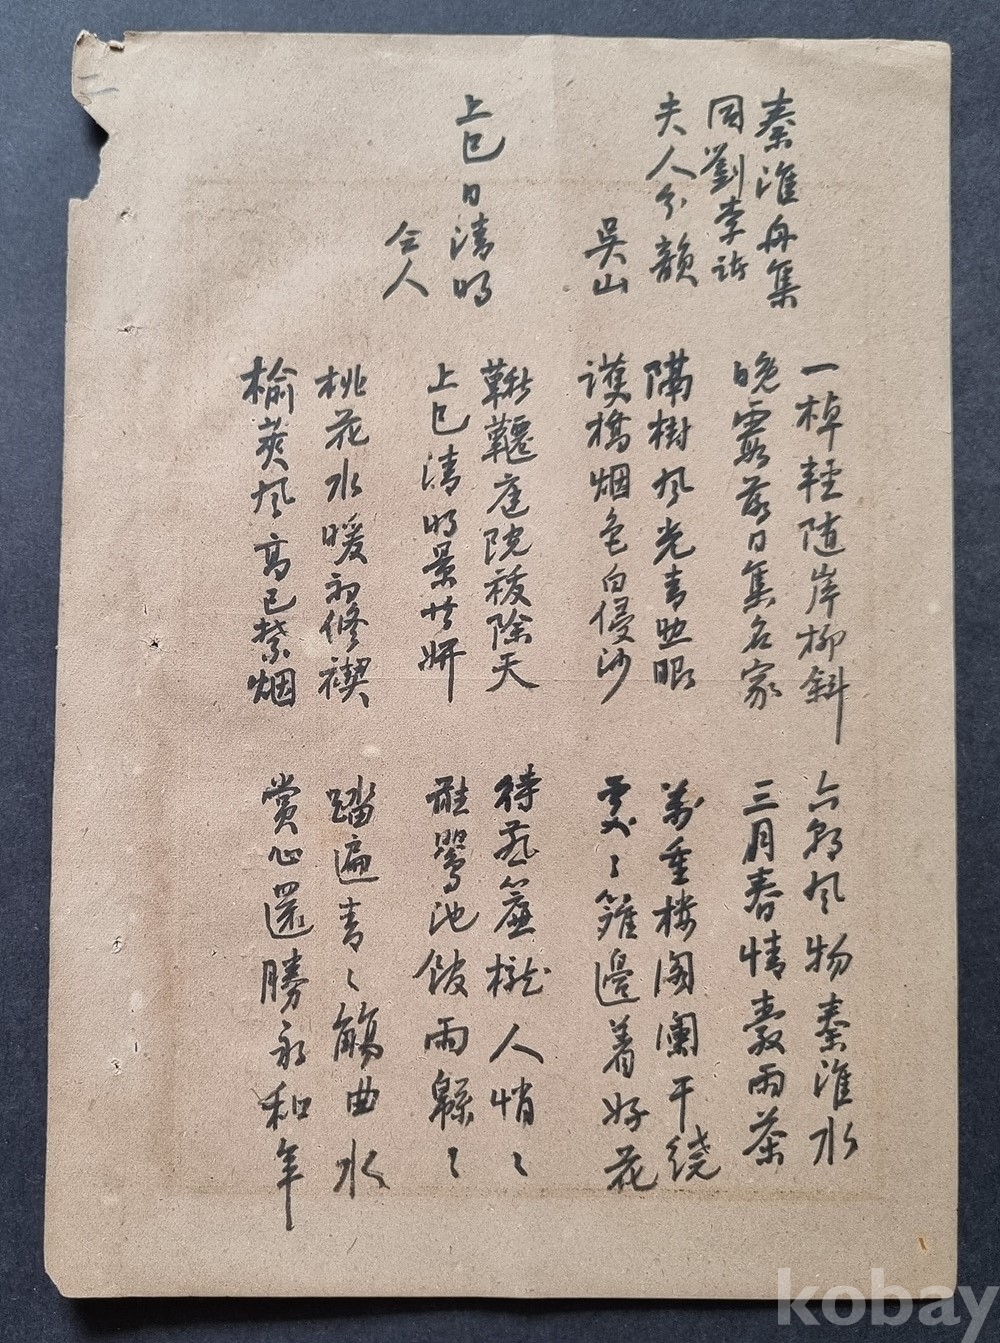 秦淮舟集
同劉李諸
夫人分韻
吳山
一棹輕随岸柳斜
晚霞落日集名家
隔樹风光青照眼
護橋烟色白侵沙
六朝风物秦淮水
三月春情穀雨茶
萬重楼阁闌干绕
處〻籬邊着好花
上巳日清明
仝人
鞦韆庭院祓除天
上巳清明景共妍
桃花水暖初修禊
榆荚风高已禁烟
待燕簾櫳人悄〻
聽鶯池館雨緜〻
踏遍青〻觴曲水
賞心還勝永和年
kobay